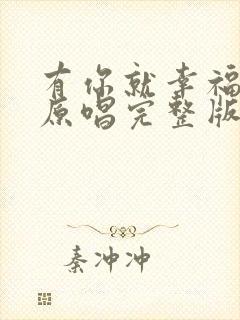 有你就幸福
原唱完整版
秦冲冲